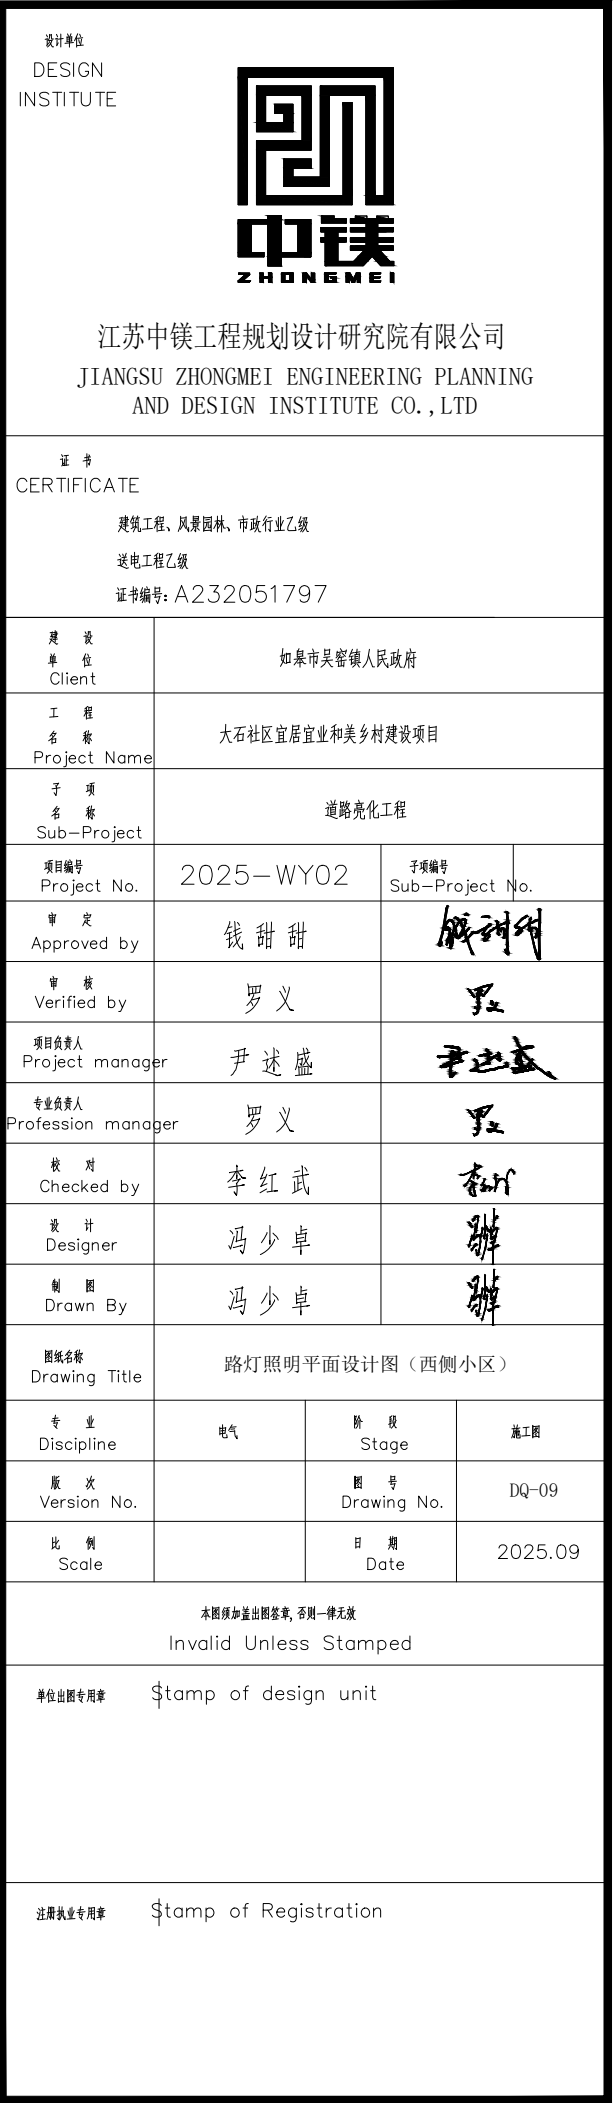 设计单位
DESIGN
INSTITUTE
中镁
ZHONGMEI
江苏中镁工程规划设计研究院有限公司
JIANGSU ZHONGMEI ENGINEERING PLANNING
AND DESIGN INSTITUTE CO.,LTD
证 书
CERTIFICATE
建筑工程、风景园林、市政行业乙级
送电工程乙级
证书编号: A232051797
建 设
单 位
Client
如皋市吴窑镇人民政府
工 程
名 称
Project Name
大石社区宜居宜业和美乡村建设项目
子 项
名 称
Sub-Project
道路亮化工程
项目编号
Project No.
2025-WY02
子项编号
Sub-Project No.
审 定
Approved by
钱甜甜
钱甜甜
审 核
Verified by
罗义
罗义
项目负责人
Project manager
尹述盛
尹述盛
专业负责人
Profession manager
罗义
罗义
校 对
Checked by
李红武
设 计
Designer
冯少卓
制 图
Drawn By
冯少卓
图纸名称
Drawing Title
路灯照明平面设计图（西侧小区）
专 业
Discipline
电气
阶 段
Stage
施工图
版 次
Version No.
图 号
Drawing No.
DQ-09
比 例
Scale
日 期
Date
2025.09
本图须加盖出图签章, 否则一律无效
Invalid Unless Stamped
单位出图专用章 Stamp of design unit
注册执业专用章 Stamp of Registration